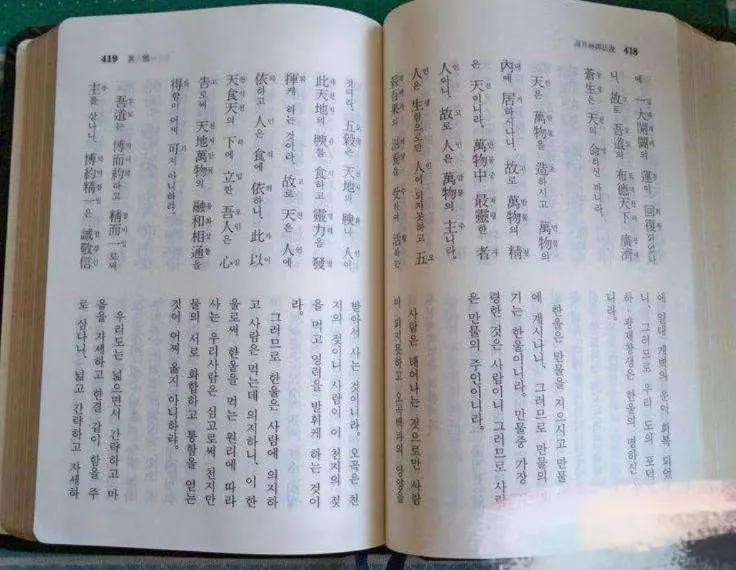 海月神師法說 418
에 一大開闢의 運이 回復되었나
니, 故로 吾道의 布德天下 廣濟
蒼生은 天의 命하신 바니라.
天은 萬物을 造하시고 萬物의
內에 居하시나니, 故로 萬物의 精
은 天이니라. 萬物中 最靈한 者
人이니, 故로 人은 萬物의 主니라.
人은 生함으로만 人이 되지못하고 五
穀百果의 滋養을 受하여 活하는
에 일대 개벽의 운이 회복 되었
니, 그러므로 우리 도의 포덕
하·광제창생은 한울의 명하신
니라.
한울은 만물을 지으시고 만물
에 계시나니, 그러므로 만물의
기는 한울이니라. 만물중 가장
령한 것은 사람이니 그러므로 사
은 만물의 주인이니라.
사람은 태어나는 것으로만 사람
이 되지못하고 오곡백과의 영양을
419 其他
것이라. 五穀은 天地의 腴니 人이
此天地의 腴를 食하고 靈力을 發
揮케 하는 것이라. 故로 天은 人에
依하고 人은 食에 依하니, 此以
天食天의 下에 立한 吾人은 心
告로써 天地萬物의 融和相通을
得함이 어찌 可치 아니하랴.
吾道는 博而約하고 精而一로써
主를 삼나니, 博約精一은 誠敬信
받아서 사는 것이니라. 오곡은 천
지의 젖이니 사람이 이 천지의 젖
을 먹고 영력을 발휘케 하는 것이
라.
그러므로 한울은 사람에 의지하
고 사람은 먹는데 의지하니, 이 한
울로써 한울을 먹는 원리에 따라
사는 우리사람은 심고로써 천지만
물의 서로 화합하고 통함을 얻는
것이 어찌 옳지 아니하랴.
우리도는 넓으면서 간략하고 마
음을 자세하고 한결 같이 함을 주
로 삼나니, 넓고 간략하고 자세하